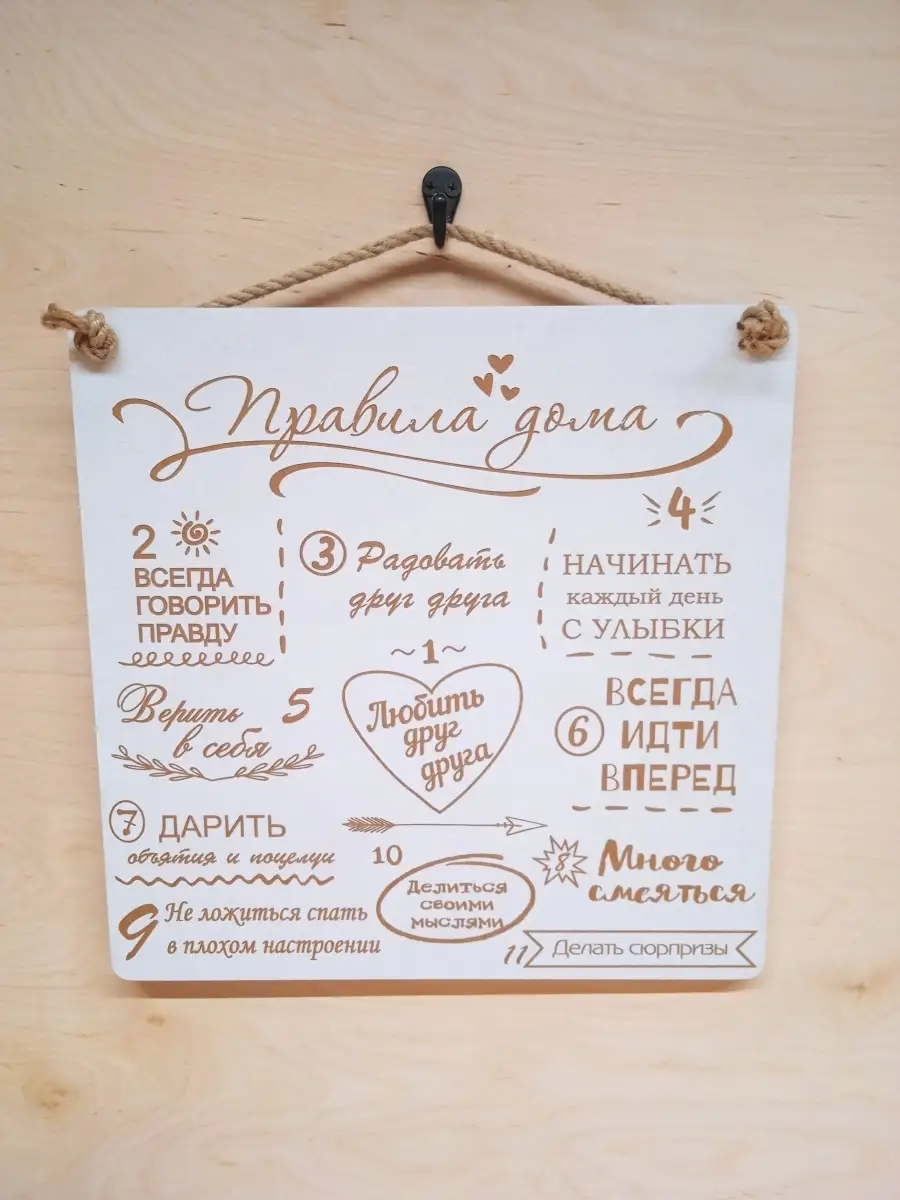 Правила дома
2
ВСЕГДА
ГОВОРИТЬ
ПРАВДУ
3 Радовать
друг друга
4
НАЧИНАТЬ
каждый день
С УЛЫБКИ
~1~
Любить
друг
друга
Верить 5
в себя
6
ВСЕГДА
ИДТИ
ВПЕРЕД
7 ДАРИТЬ
объятия и поцелуи
8 Много
смеяться
9 Не ложиться спать
в плохом настроении
10
Делиться
своими
мыслями
11 Делать сюрпризы